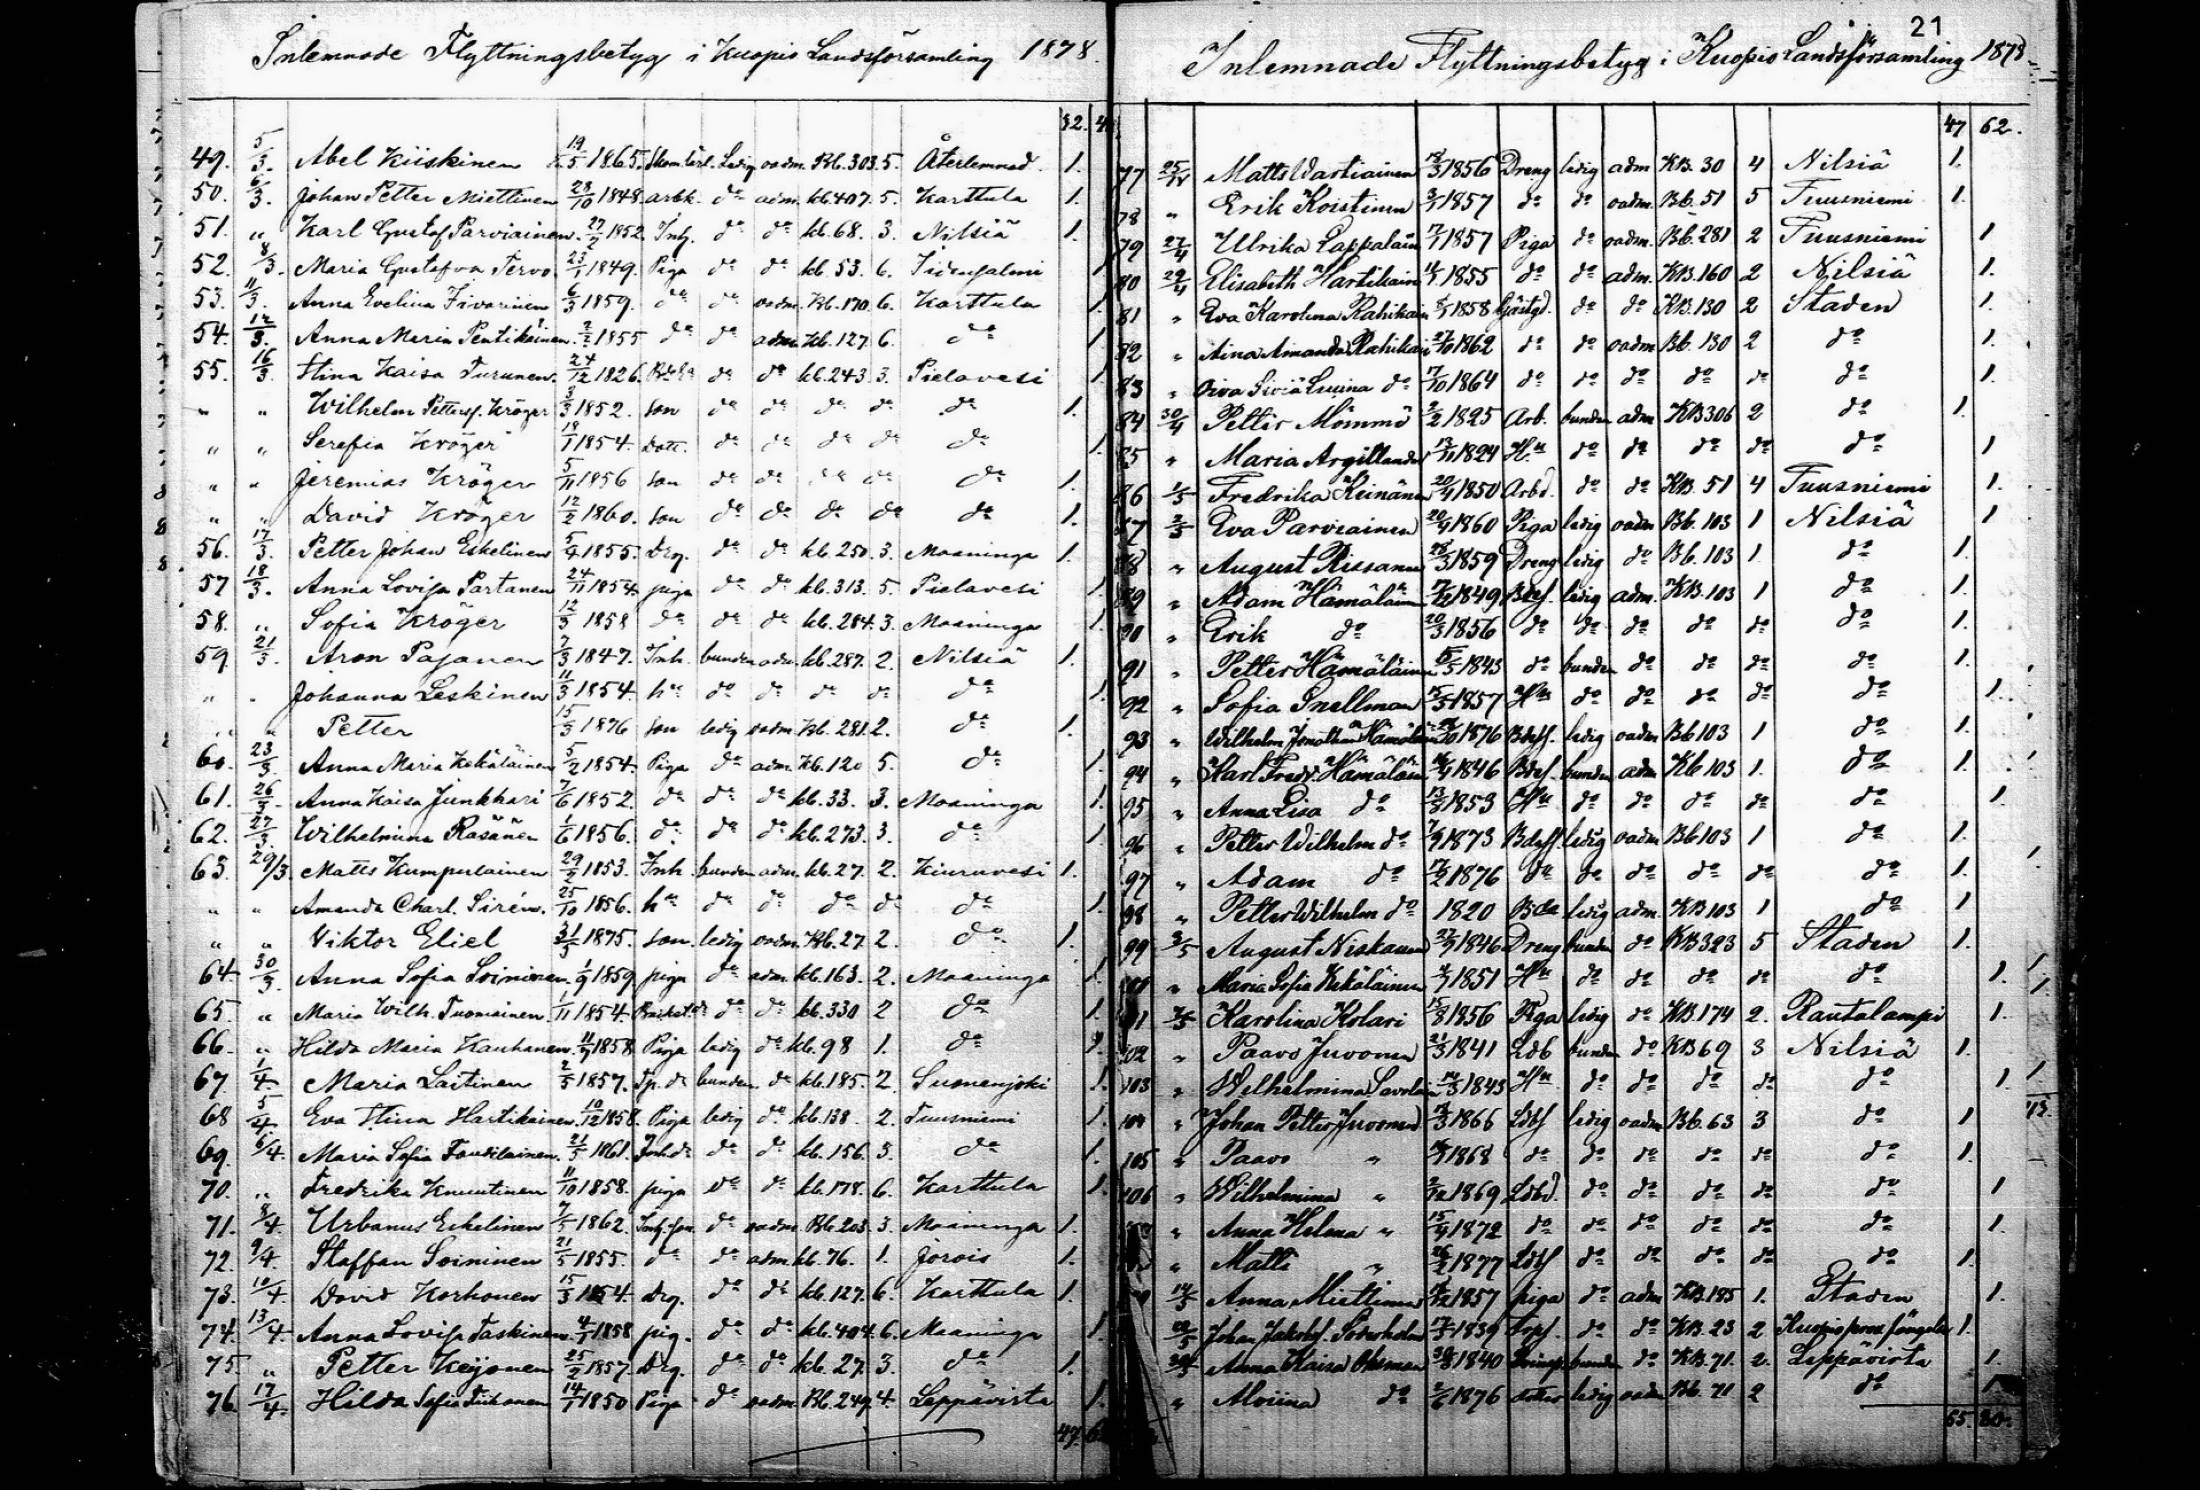 Inlemnade Flyttningsbetyg i Kuopio Landsförsamling 1878.
32. 4
49. 5/3. Abel Kiiskinen 19/5 1865. Ledig oadm. Bb. 303. 5. Återlemnad. 1.
50. 6/3. Johan Petter Miettinen 28/10 1848. arbk. do adm. kb. 407. 5. Karttula 1.
51. " Karl Gustaf Parviainen. 27/2 1852. Inh. do do kb. 68. 3. Nilsiä 1.
52. 8/3. Maria Gustafva Tervo 23/1 1849. Piga do do kb. 53. 6. Idensalmi 1
53. 11/3. Anna Evelina Tivarinen 6/3 1859. do do oadm. Bb. 170. 6. Karttula 1
54. 12/3. Anna Maria Pentikäinen. 2/2 1855 do do adm. kb. 127. 6. do 1
55. 16/3. Stina Kaisa Turunen. 24/12 1826. do do kb. 243. 3. Pielavesi 1
" " Wilhelm Pettersf. Kröger 3/3 1852. son do do do do do 1.
" " Serefia Kröger 18/1 1854. Dott. do do do do do 1.
" " Jeremias Kröger 5/11 1856 son do do do do do 1.
" " David Kröger 12/2 1860. son do do do do do 1.
56. 17/3. Petter Johan Eskelinen 5/4 1855. Drg. do do kb. 250. 3. Maaninga 1.
57 18/3. Anna Lovisa Partanen 24/11 1854. piga do do kb. 313. 5. Pielavesi 1
58. " Sofia Kröger 12/3 1858 do do do kb. 284. 3. Maaninga 1
59 21/3. Aron Pajanen 7/3 1847. Inh. bunden adm. kb. 287. 2. Nilsiä 1.
" " Johanna Leskinen 11/3 1854. hu do do do do do 1.
" " Petter 15/3 1876 son ledig oadm. Bb. 281. 2. do 1.
60. 23/3. Anna Maria Kekäläinen 5/2 1854. Piga do adm. kb. 120 5. do 1.
61. 26/3. Anna Kaisa Junkkari 7/6 1852. do do do kb. 33. 3. Maaninga 1.
62. 27/3. Wilhelmina Räsänen 1/6 1856. do do do kb. 273. 3. do 1
63. 29/3. Matts Kumpulainen 29/2 1853. Inh. bunden adm. kb. 27. 2. Kiuruvesi 1.
" " Amanda Charl. Sirén. 25/10 1856. hu do do do do do 1.
" " Viktor Eliel 31/3 1875. son. ledig oadm. Bb. 27. 2. do 1.
64. 30/3. Anna Sofia Soininen. 1/9 1859. piga do adm. kb. 163. 2. Maaninga 1.
65. " Maria Wilh. Tuomainen. 1/11 1854. do do kb. 330 2 do 1.
66. " Hilda Maria Kauhanen. 11/9 1858. Piga ledig do kb. 98 1. do 1.
67. 1/4. Maria Laitinen 2/5 1857. bunden. do kb. 185. 2. Suonenjoki 1.
68 5/4. Eva Stina Hartikainen. 10/12 1858. Piga ledig do kb. 138 2. Tuusniemi 1.
69. 6/4. Maria Sofia Taudilainen. 21/5 1861. Inh.dr do do kb. 156. 3. do 1.
70. " Fredrika Knuutinen 11/10 1858. piga do do kb. 178. 6. Karttula 1.
71. 8/4. Urbanus Eskelinen 7/5 1862. Inh. son. do oadm. Bb. 203. 3. Maaninga 1.
72. 9/4. Staffan Soininen 21/5 1855. do do adm. kb. 76. 1. Jorois 1.
73. 10/4. David Korhonen 15/3 1854. Drg. do do kb. 127. 6. Karttula 1.
74. 13/4. Anna Lovisa Taskinen. 4/1 1858. pig. do do kb. 404. 6. Maaninga 1.
75. " Petter Keijonen 25/2 1857. Drg. do do kb. 27. 3. do 1.
76. 17/4. Hilda Sofia Tiihonen 14/1 1850 Piga do oadm. Bb. 249 4. Leppävirta 1.
47. 62
21
Inlemnade Flyttningsbetyg i Kuopio Landsförsamling 1878
47 62.
77 25/4 Matts Vartiainen 18/3 1856 Dreng ledig adm KB. 30 4 Nilsiä 1.
78 " Erik Koistinen 3/1 1857 do do oadm. Bb. 51 5 Tuusniemi 1.
79 27/4 Ulrika Lappalain 17/1 1857 Piga do oadm. Bb. 281 2 Tuusniemi 1
80 29/4 Elisabeth Hartikain 1855 do do adm. KB. 160 2 Nilsiä 1.
81 " Eva Karolina Rahikain 1858 do do KB. 130 2 Staden 1.
82 " Aina Amanda Rahikain 27/10 1862 do do oadm Bb. 130 2 do 1.
83 " 17/10 1864 do do do do do do 1.
84 30/4 Petter Mömmö 2/2 1825 Arb. bunden adm. KB 306 2 do 1.
85 " Maria Argillander 13/11 1824 Hu do do do do do 1
86 1/5 Fredrika Keinänen 20/4 1850 Arbd. do do KB. 51 4 Tuusniemi 1.
87 2/5 Eva Parviainen 20/9 1860 Piga ledig oadm Bb. 103 1 Nilsiä 1
88 " August Rissanen 28/3 1859 Dreng ledig do Bb. 103 1 do 1.
89 " Adam Hämäläin 1849 Bdsf. ledig adm. KB. 103 1 do 1.
90 " Erik do 20/3 1856 do do do do do do 1.
91 " Petter Hämäläinen 1843 do bunden do do do do 1.
92 " Sofia Snellman 15/5 1857 Hu do do do do do 1.
93 " Wilhelm Jonathan Hämäläinen 1876 ledig oadm Bb 103 1 do 1.
94 " Karl Fredr. Hämäläin 1846 Bdsf. bunden adm Kb 103 1. do 1.
95 " Anna Lisa do 13/8 1853 Hu do do do do do 1.
96 " Petter Wilhelm do 7/9 1873 ledig oadm Bb 103 1 do 1.
97 " Adam do 17/2 1876 do do do do do do 1
98 " Petter Wilhelm do 1820 ledig adm. KB 103 1 do 1
99 3/5 August Niskanen 27/9 1846 Dreng bunden do KB 323 5 Staden 1.
" Maria Sofia Kekäläinen 1851 Hu do do do do do 1.
101 7/5 Karolina Kolari 15/8 1856 Piga ledig do KB. 174 2. Rautalampi 1.
102 " Paavo Juvonen 21/3 1841 Ldb bunden do KB 69 3 Nilsiä 1.
103 " Wilhelmina Savolain 1843 Hu do do do do do 1.
104 " Johan Petter Juvonen 1866 Ldbs ledig oadm Bb. 63 3 do 1
105 " Paavo " 1868 do do do do do do 1.
106 " Wilhelmina " 1869 Ldbd. do do do do do 1
" Anna Helena " 15/4 1872 do do do do do do 1.
" Matti " 1877 Ldbs do do do do do 1.
14/5 Anna Miettinen 1857 piga do adm KB. 185 1. Staden 1.
Johan Jakobsf. Söderholm 17/3 1839 do do KB. 23 2 Kuopio 1.
Anna Kaisa Ohsman 1840 bunden do KB. 71. 2. Leppävirta 1.
" Alviina do 2/6 1876 dotter ledig oadm Bb. 71 2 do 1
65. 80.